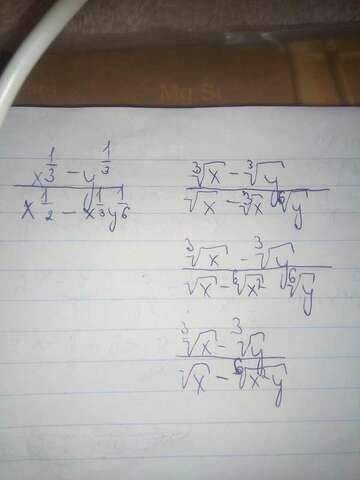 Mg. Sc
x^{1/3} - y^{1/3}
x^{1/2} - x^{1/3}y^{1/6}
∛x - ∛y
√x - ∛x ⁶√y
∛x - ∛y
√x - ⁶√x² ⁶√y
∛x - ∛y
√x - ⁶√x²y